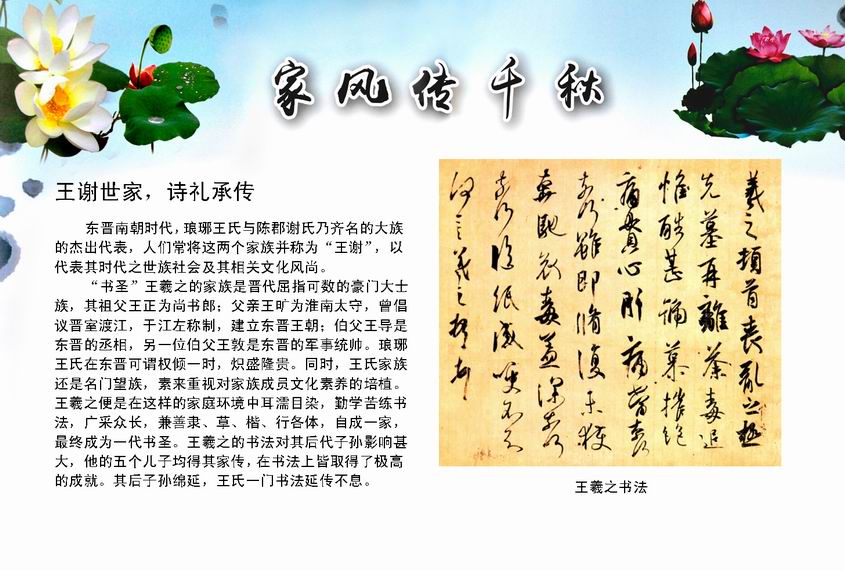 家风传千秋
王谢世家，诗礼承传
东晋南朝时代，琅琊王氏与陈郡谢氏乃齐名的大族
的杰出代表，人们常将这两个家族并称为“王谢”，以
代表其时代之世族社会及其相关文化风尚。
“书圣”王羲之的家族是晋代屈指可数的豪门大士
族，其祖父王正为尚书郎；父亲王旷为淮南太守，曾倡
议晋室渡江，于江左称制，建立东晋王朝；伯父王导是
东晋的丞相，另一位伯父王敦是东晋的军事统帅。琅琊
王氏在东晋可谓权倾一时，炽盛隆贵。同时，王氏家族
还是名门望族，素来重视对家族成员文化素养的培植。
王羲之便是在这样的家庭环境中耳濡目染，勤学苦练书
法，广采众长，兼善隶、草、楷、行各体，自成一家，
最终成为一代书圣。王羲之的书法对其后代子孙影响甚
大，他的五个儿子均得其家传，在书法上皆取得了极高
的成就。其后子孙绵延，王氏一门书法延传不息。
羲之顿首丧乱之极
先墓再離荼毒追
惟酷甚號慕摧絕
痛貫心肝痛當奈
奈何雖即脩復未獲
奔馳哀毒益深奈何
奈何臨紙感哽不知
何言羲之頓首
王羲之书法